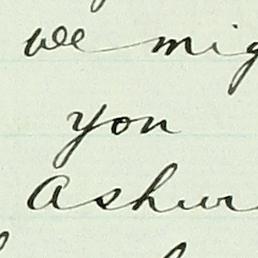 we mig
you
Ashur